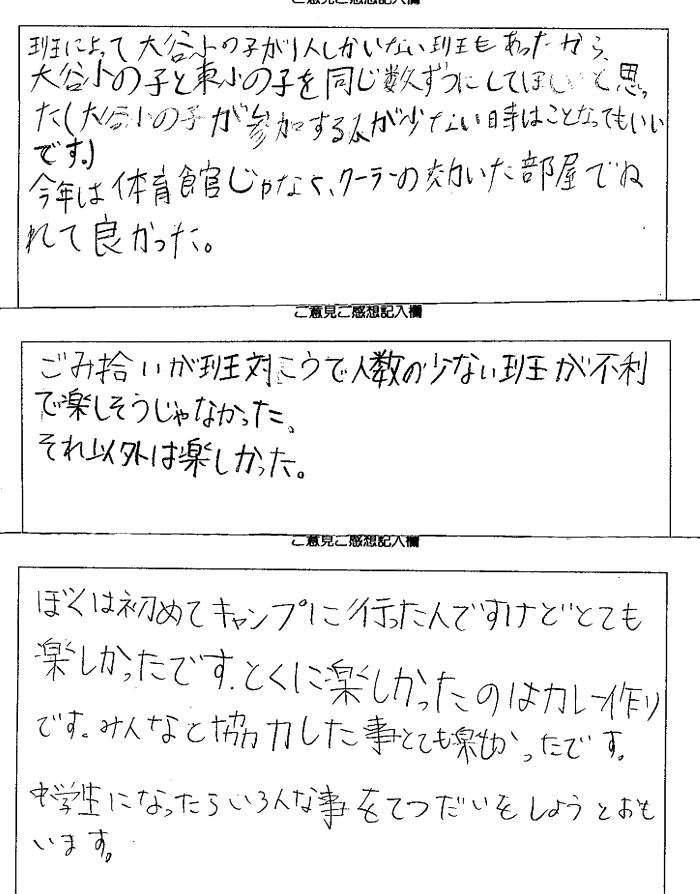 ご意見ご感想記入欄
班によって大谷小の子が1人しかいない班もあったから、
大谷小の子と東小の子を同じ数ずつにしてほしいと思っ
た(大谷小の子が参加する人が少ない時はことなってもいい
です。)
今年は体育館じゃなく、クーラーの効いた部屋でね
れて良かった。
ご意見ご感想記入欄
ごみ拾いが班対こうで人数の少ない班が不利
で楽しそうじゃなかった。
それ以外は楽しかった。
ご意見ご感想記入欄
ぼくは初めてキャンプに行ったんですけどとても
楽しかったです。とくに楽しかったのはカレー作り
です。みんなと協力した事とても楽しかったです。
中学生になったらいろんな事をてつだいをしようとおも
います。